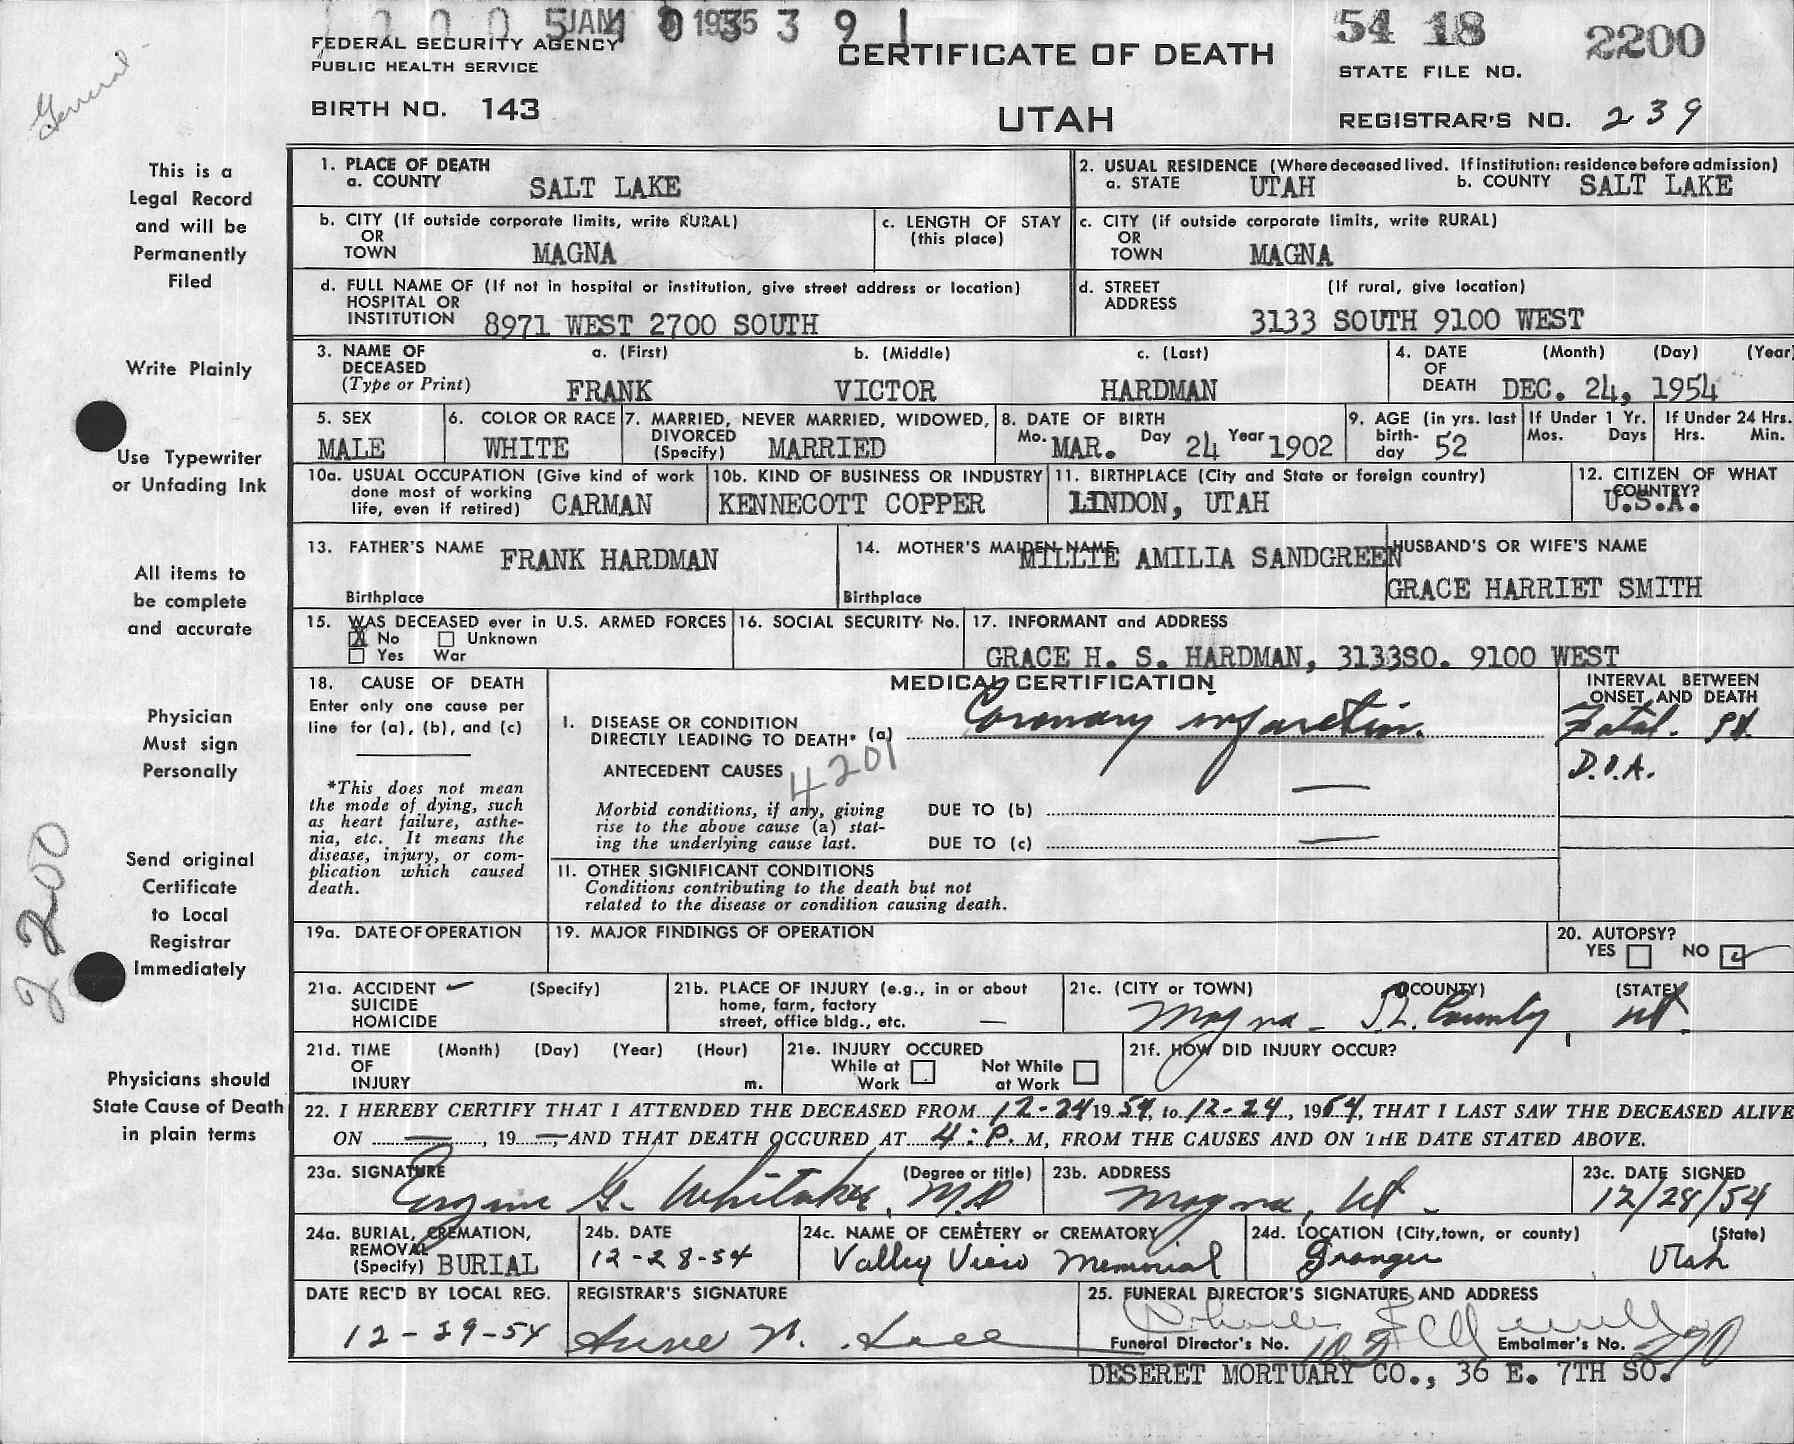 JAN 1955
54 18 2200
General
FEDERAL SECURITY AGENCY
PUBLIC HEALTH SERVICE
CERTIFICATE OF DEATH
STATE FILE NO.
BIRTH NO. 143
UTAH
REGISTRAR'S NO. 239
This is a
Legal Record
and will be
Permanently
Filed
Write Plainly
Use Typewriter
or Unfading Ink
All items to
be complete
and accurate
Physician
Must sign
Personally
Send original
Certificate
to Local
Registrar
Immediately
2200
Physicians should
State Cause of Death
in plain terms
1. PLACE OF DEATH
a. COUNTY SALT LAKE
2. USUAL RESIDENCE (Where deceased lived. If institution: residence before admission)
a. STATE UTAH b. COUNTY SALT LAKE
b. CITY (If outside corporate limits, write RURAL)
OR
TOWN MAGNA
c. LENGTH OF STAY
(this place)
c. CITY (if outside corporate limits, write RURAL)
OR
TOWN MAGNA
d. FULL NAME OF (If not in hospital or institution, give street address or location)
HOSPITAL OR
INSTITUTION 8971 WEST 2700 SOUTH
d. STREET (If rural, give location)
ADDRESS
3133 SOUTH 9100 WEST
3. NAME OF a. (First) b. (Middle) c. (Last)
DECEASED
(Type or Print) FRANK VICTOR HARDMAN
4. DATE (Month) (Day) (Year
OF
DEATH DEC. 24, 1954
5. SEX
MALE
6. COLOR OR RACE
WHITE
7. MARRIED, NEVER MARRIED, WIDOWED,
DIVORCED
(Specify) MARRIED
8. DATE OF BIRTH
Mo. MAR. Day 24 Year 1902
9. AGE (in yrs. last
birth-
day 52
If Under 1 Yr.
Mos. Days
If Under 24 Hrs.
Hrs. Min.
10a. USUAL OCCUPATION (Give kind of work
done most of working
life, even if retired) CARMAN
10b. KIND OF BUSINESS OR INDUSTRY
KENNECOTT COPPER
11. BIRTHPLACE (City and State or foreign country)
LINDON, UTAH
12. CITIZEN OF WHAT
COUNTRY?
U.S.A.
13. FATHER'S NAME FRANK HARDMAN
Birthplace
14. MOTHER'S MAIDEN NAME
MILLIE AMILIA SANDGREEN
Birthplace
HUSBAND'S OR WIFE'S NAME
GRACE HARRIET SMITH
15. WAS DECEASED ever in U.S. ARMED FORCES
X No Unknown
Yes War
16. SOCIAL SECURITY No.
17. INFORMANT and ADDRESS
GRACE H. S. HARDMAN, 3133SO. 9100 WEST
18. CAUSE OF DEATH
Enter only one cause per
line for (a), (b), and (c)
*This does not mean
the mode of dying, such
as heart failure, asthe-
nia, etc. It means the
disease, injury, or com-
plication which caused
death.
MEDICAL CERTIFICATION
I. DISEASE OR CONDITION
DIRECTLY LEADING TO DEATH* (a) Coronary infarction.
ANTECEDENT CAUSES 4201
Morbid conditions, if any, giving
rise to the above cause (a) stat-
ing the underlying cause last.
DUE TO (b) —
DUE TO (c) —
INTERVAL BETWEEN
ONSET AND DEATH
Fatal.
D.O.A.
II. OTHER SIGNIFICANT CONDITIONS
Conditions contributing to the death but not
related to the disease or condition causing death.
19a. DATE OF OPERATION
19. MAJOR FINDINGS OF OPERATION
20. AUTOPSY?
YES NO
21a. ACCIDENT – (Specify)
SUICIDE
HOMICIDE
21b. PLACE OF INJURY (e.g., in or about
home, farm, factory
street, office bldg., etc. —
21c. (CITY or TOWN) (COUNTY) (STATE)
Magna - S.L. County, Ut.
21d. TIME (Month) (Day) (Year) (Hour)
OF
INJURY m.
21e. INJURY OCCURED
While at Not While
Work at Work
21f. HOW DID INJURY OCCUR?
22. I HEREBY CERTIFY THAT I ATTENDED THE DECEASED FROM 12-24 1954, to 12-24, 1954, THAT I LAST SAW THE DECEASED ALIVE
ON —, 19 —, AND THAT DEATH OCCURED AT 4: P. M, FROM THE CAUSES AND ON THE DATE STATED ABOVE.
23a. SIGNATURE (Degree or title)
Eugene G. Whitaker, M.D
23b. ADDRESS
Magna, Ut.
23c. DATE SIGNED
12/28/54
24a. BURIAL, CREMATION,
REMOVAL
(Specify) BURIAL
24b. DATE
12-28-54
24c. NAME OF CEMETERY or CREMATORY
Valley View Memorial
24d. LOCATION (City, town, or county) (State)
Granger Utah
DATE REC'D BY LOCAL REG.
12-29-54
REGISTRAR'S SIGNATURE
25. FUNERAL DIRECTOR'S SIGNATURE AND ADDRESS
Funeral Director's No. Embalmer's No. 270
DESERET MORTUARY CO., 36 E. 7TH SO.